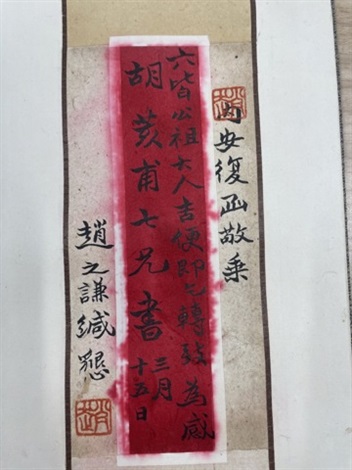 內安復函敬乘
六皆公祖大人吉便即乞轉致為感
胡荄甫七兄書
三月
十五日
趙之謙緘懇